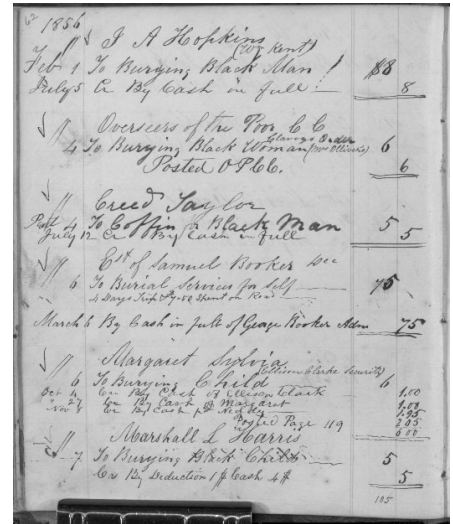 62
1856
" J A Hopkins
(Wg Kent)
Feb 1 To Burying Black Man $8
July 5 Cr By Cash in full 8
" Overseers of the Poor C C
4 To Burying Black Woman 6
Posted O P CC. 6
" Creed Taylor
4 To Coffin for Black Man 5
July 12 Cr By Cash in full 5
" Est of Samuel Booker Dec
6 To Burial Services for Self 75
4 Days Trip
March 6 By Cash in full of George Booker Adm 75
" Margaret Sylvia
(Ellison Clarke Security)
6 To Burying Child 6
Oct 4 Cr By Cash of Ellison Clark 1.00
27 Cr By Cash of Margaret 1.00
Nov 8 Cr By Cash 1.95
Posted Page 119 2.05
6.00
" Marshall L Harris
7 To Burying Black Child 5
Cr By Deduction 1$ Cash 4$ 5
105